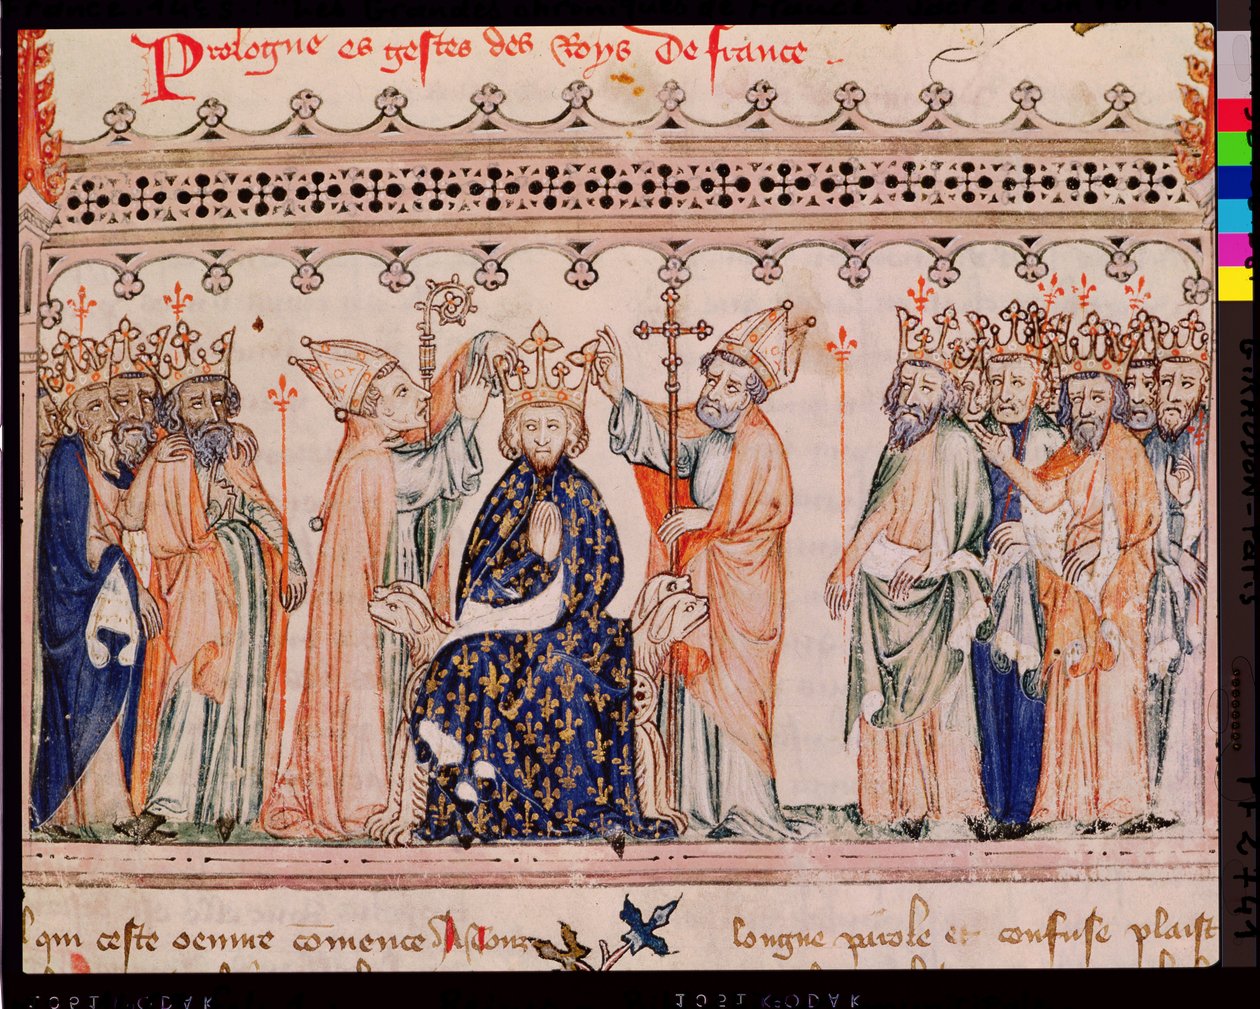 Prologue es gestes des Roys De france
qui ceste oeuure cōmence
longue parole et confuse plaist
GIRAUDON-PARIS
1951 KODAK